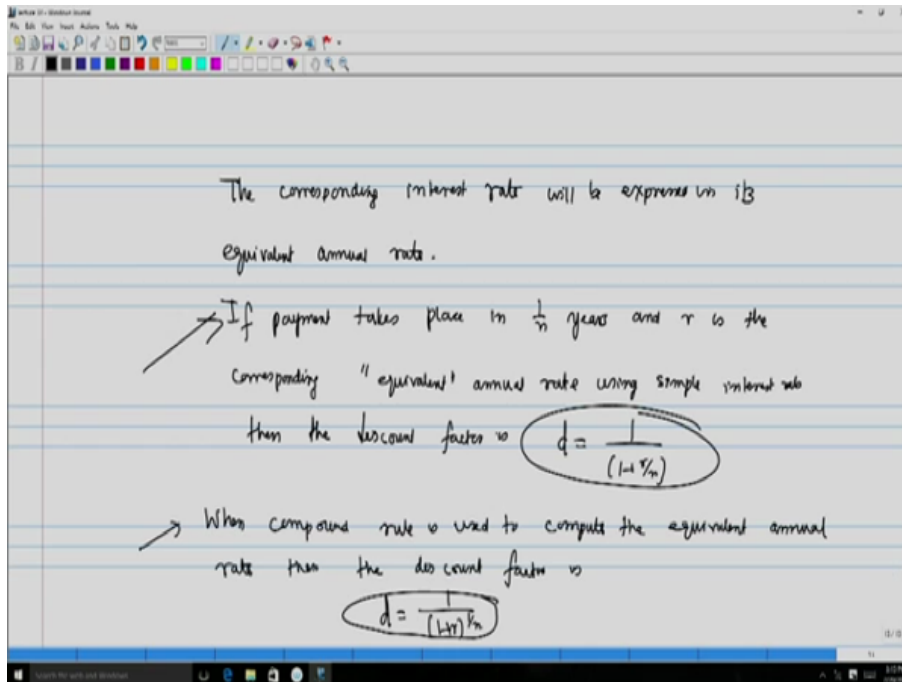 File Edit View Insert Actions Tools Help
B I
The corresponding interest rate will be express in its
equivalent annual rate.
If payment takes place in 1/n years and r is the
corresponding "equivalent" annual rate using simple interest rule
then the discount factor is d = 1/(1+r/n)
When compound rule is used to compute the equivalent annual
rate then the discount factor is
d = 1/(1+r)^{1/n}
Search the web and Windows